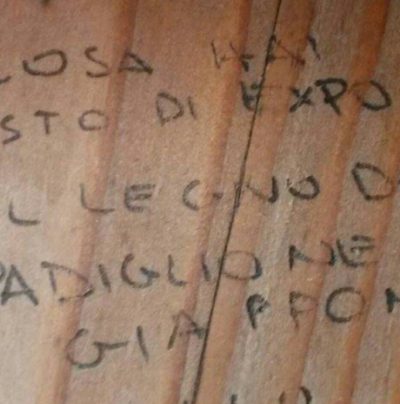 COSA HAI
STO DI EXPO
L LEGNO D
PADIGLIONE
GIAPPON